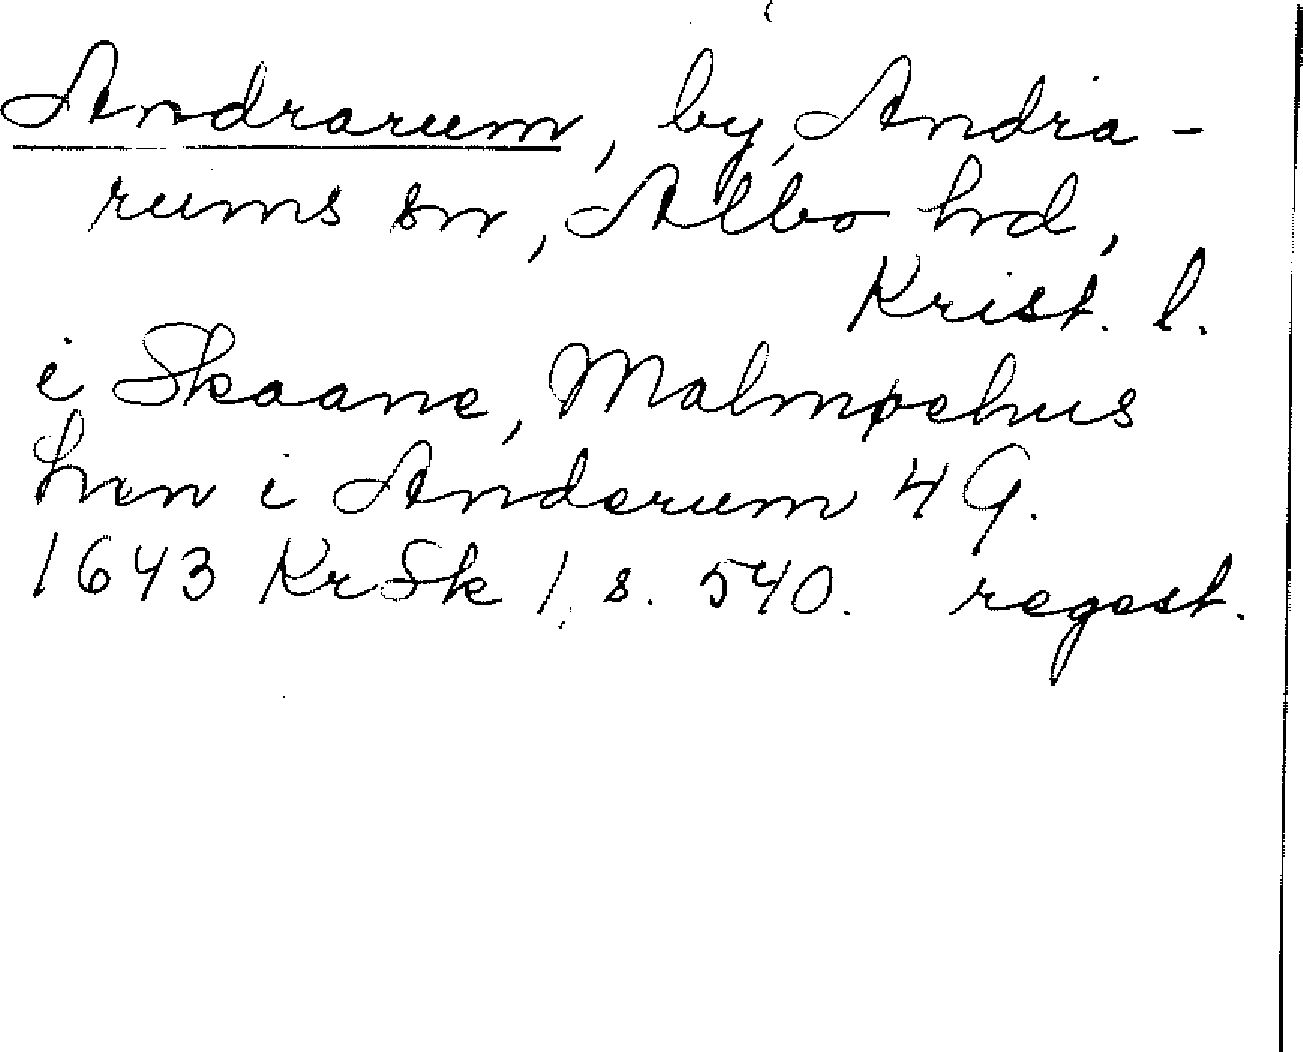 Andrarum, by, Andra-
rums sn, Albo hd,
Krist. l.
i Skaane, Malmøehus
hren i Anderum 4 G.
1643 KrSk 1, s. 540. regest.